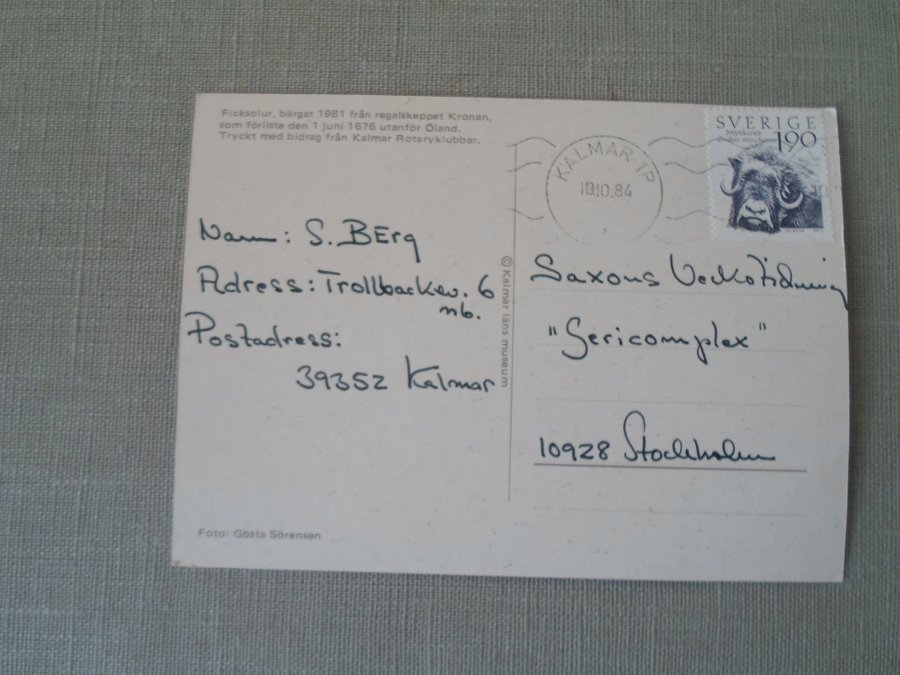 Ficksolur, bärgat 1981 från regalskeppet Kronan,
som förliste den 1 juni 1676 utanför Öland.
Tryckt med bidrag från Kalmar Rotaryklubbar.
SVERIGE
Myskoxe
190
KALMAR 1P
10.10.84
Namn: S. BErg
Adress: Trollbackev. 6
nb.
Postadress:
39352 Kalmar
© Kalmar läns museum
Saxons Veckotidning
"Sericomplex"
10928 Stockholm
Foto: Gösta Sörensen